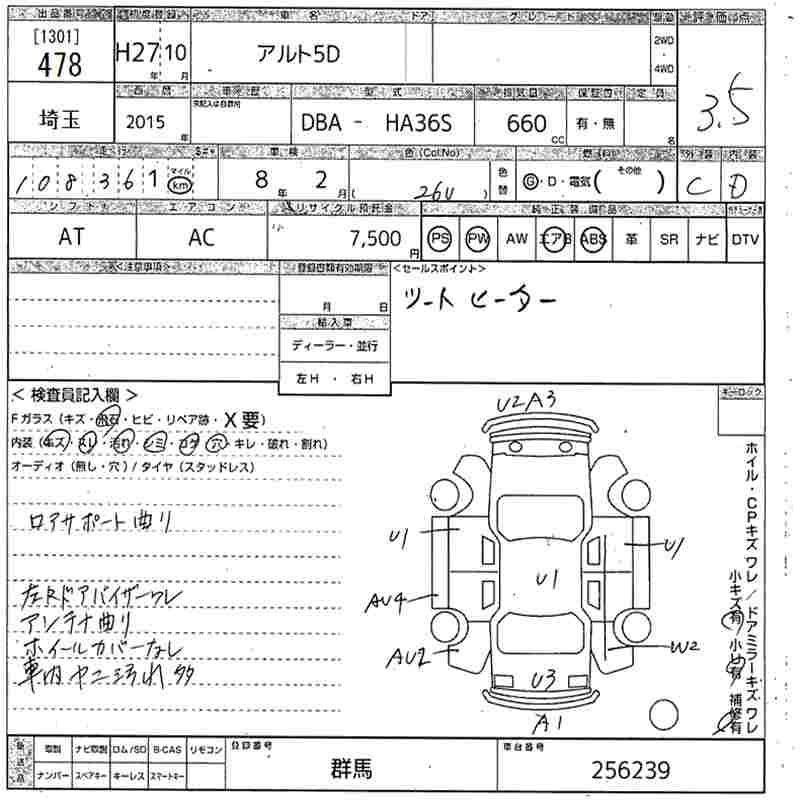 出品番号 初度登録 車名 ドア グレード 駆動 評価点
[1301]
478
H27年 10月
アルト5D
2WD
4WD
3.5
埼玉
西暦 車歴 型式 排気量 保証書 定員
2015年
未記入は自家用
DBA - HA36S
660cc
有・無
名
走行 車検 色(Col.No) 燃料 外装 内装
108361
マイル
km
8年 2月
( 26U )
色替
G・D・電気( その他 )
C D
シフト エアコン リサイクル預託金 純正装備品
AT AC 7,500円
PS PW AW エアB ABS 革 SR ナビ DTV
<注意事項> 登録書類有効期限 <セールスポイント>
月 日
シートヒーター
輸入車
ディーラー・並行
左H・右H
<検査員記入欄>
Fガラス(キズ・飛石・ヒビ・リペア跡・X要)
内装(キズ・スレ・汚れ・シミ・コゲ・穴・キレ・破れ・割れ)
オーディオ(無し・穴)/タイヤ(スタッドレス)
ロアサポート曲り
左Rドアバイザーワレ
アンテナ曲り
ホイールカバーなし
車内ヤニ汚れ多
キーロック
U2A3
U1
U1
U1
AU4
AU2
W2
U3
A1
ホイル・CPキズワレ/ドアミラーキズワレ
小キズ有 小凹有 補修有
発送品
取説 ナビ取説 ロム/SD B-CAS リモコン
ナンバー スペアキー キーレス スマートキー
登録番号
群馬
車台番号
256239